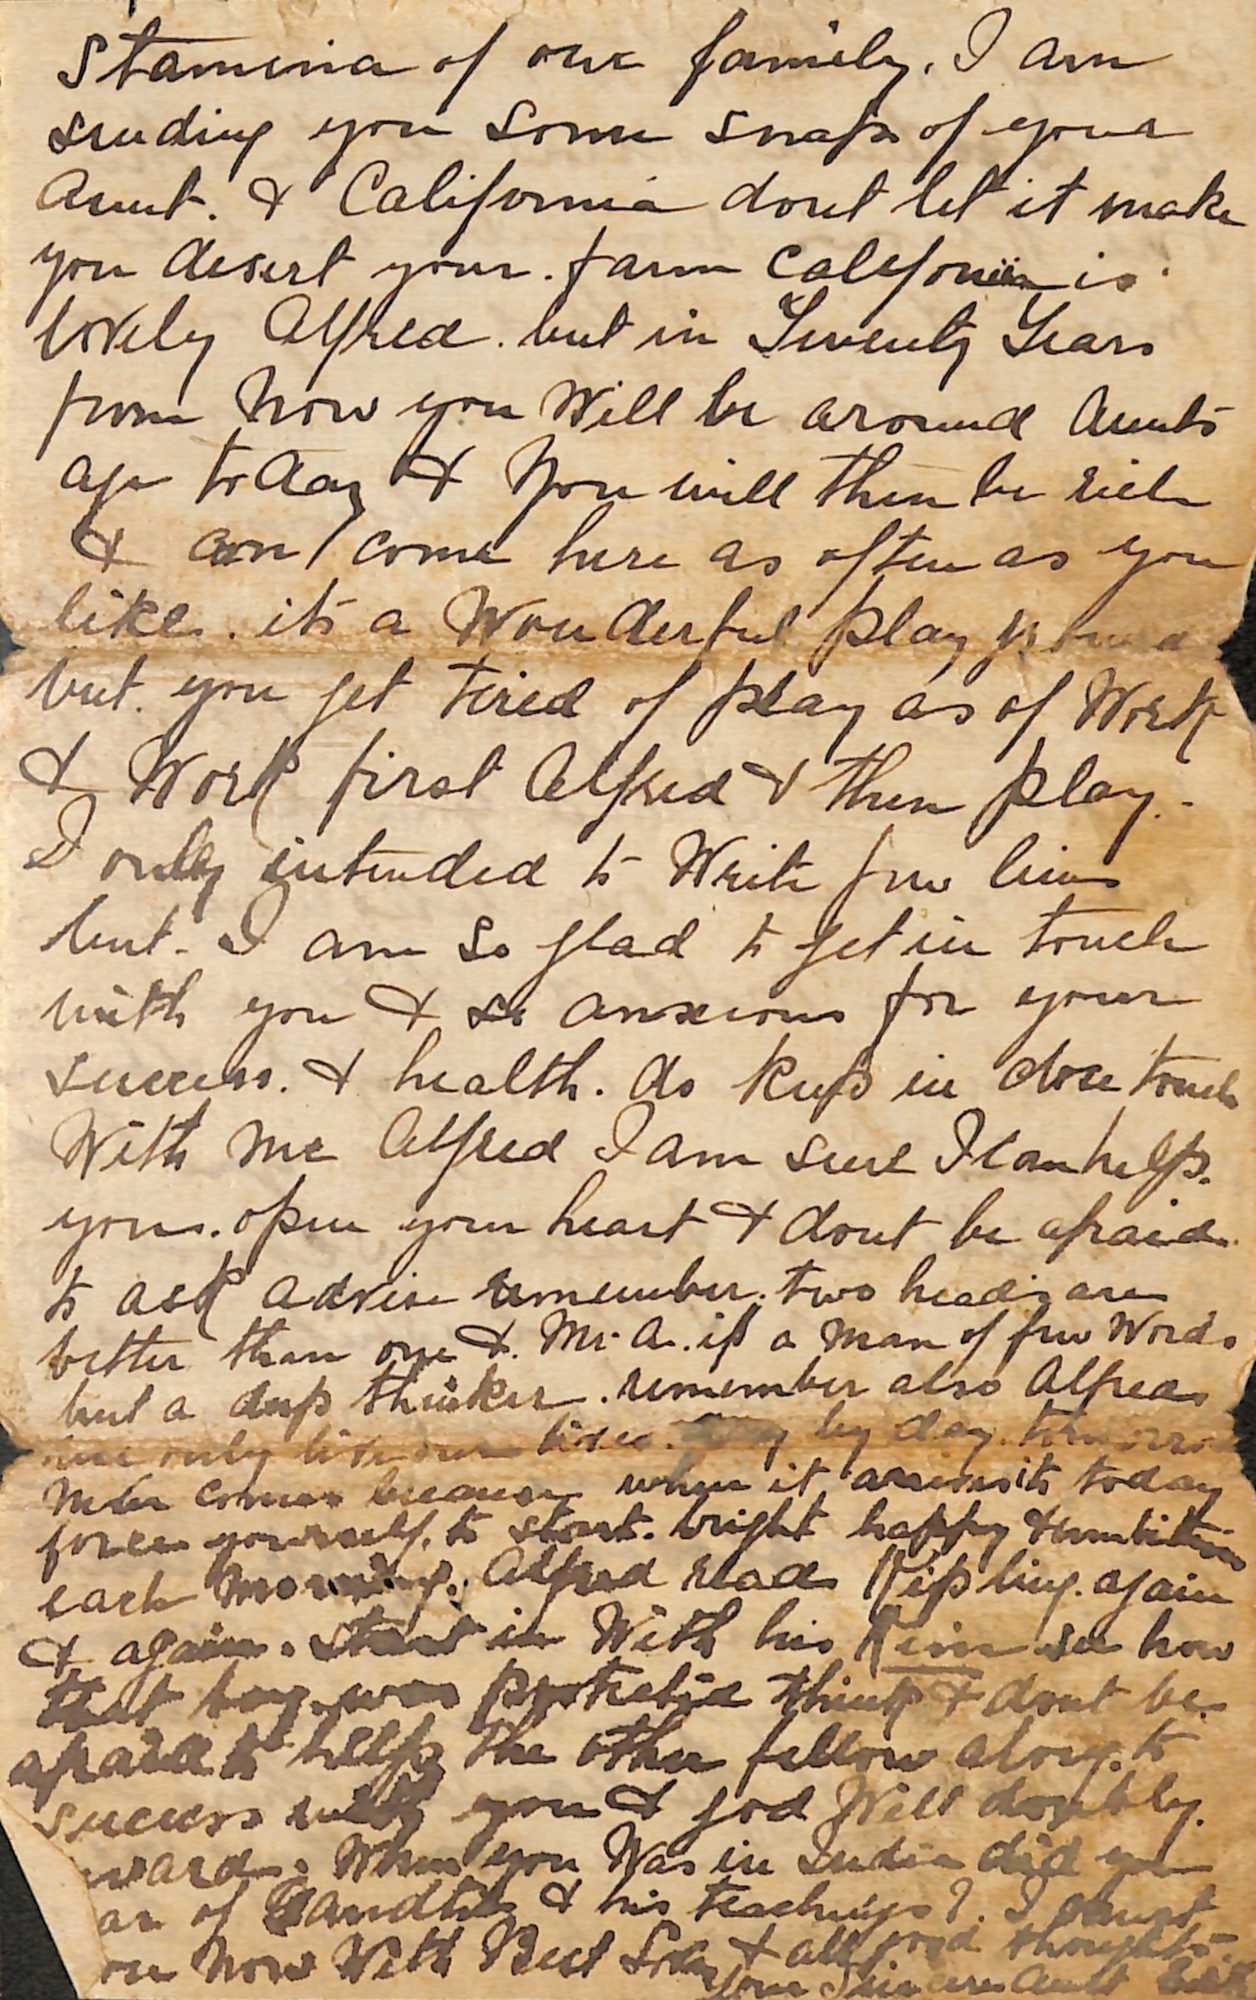 Stamina of our family. I am
sending you some snaps of your
Aunt. & California dont let it make
you desert your. farm California is
lovely Alfred. but in Twenty Years
from Now you Will be around Aunts
age today & You will then be rich
& can come here as often as you
like. its a Wonderful play ground
but. you get tired of play as of Work
& Work first Alfred & then play.
I only intended to Write few lines
but - I am so glad to get in touch
with you & so anxious for your
success. & health. do keep in close touch
With me Alfred I am sure I can help.
you. open your heart & dont be afraid
to ask advise remember. two heads are
better than one &. Mr. A. is a man of few Words
but a deep thinker. remember also Alfred
we only live our lives day by day. tomorrow
never comes because when it arrives its today
force yourself. to start. bright happy & ambitious
each morning. Alfred read Kipling. again
& again. start in With his Kim see how
that boy was protected think & dont be.
afraid to help the other fellow along. to
success with you & god Will doubly.
When you Was in India did you
of Gandhi & his teachings?. I must
now With Best Love & all good thoughts -
Your Sincere Aunt